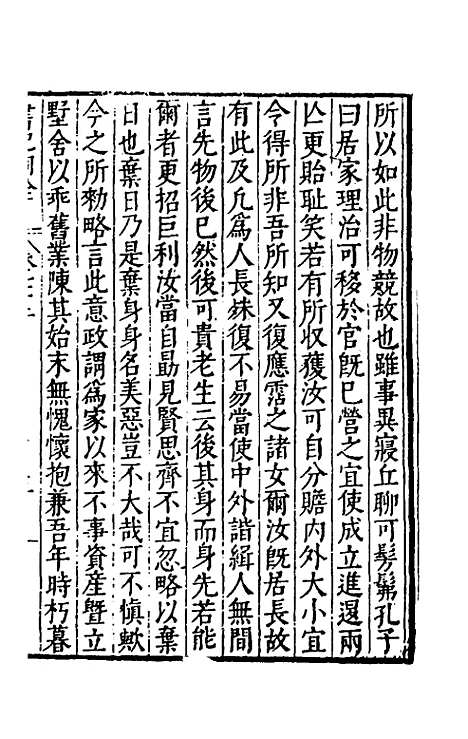 所以如此非物競故也雖事異寢丘聊可髣髴孔子
曰居家理治可移於官既已營之宜使成立進退兩
亾更貽恥笑若有所收獲汝可自分贍内外大小宜
令得所非吾所知又復應霑之諸女爾汝既居長故
有此及凡爲人長殊復不易當使中外諧緝人無間
言先物後已然後可貴老生云後其身而身先若能
爾者更招巨利汝當自勗見賢思齊不宜忽略以棄
日也棄日乃是棄身身名美惡豈不大哉可不慎歟
今之所勑略言此意政謂爲家以來不事資産曁立
墅舍以乖舊業陳其始末無愧懷抱兼吾年時朽暮